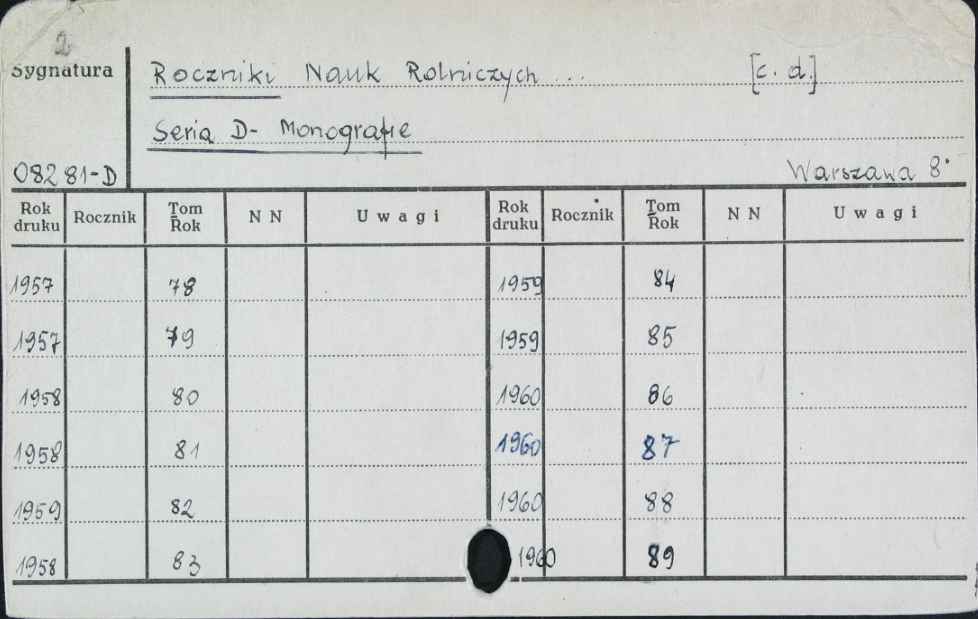 2
Sygnatura
Roczniki Nauk Rolniczych ... [c. d.]
Seria D- Monografie
08281-D
Warszawa 8°
Rok druku Rocznik Tom Rok N N U w a g i Rok druku Rocznik Tom Rok N N U w a g i
1957 78 1959 84
1957 79 1959 85
1958 80 1960 86
1958 81 1960 87
1959 82 1960 88
1958 83 1960 89